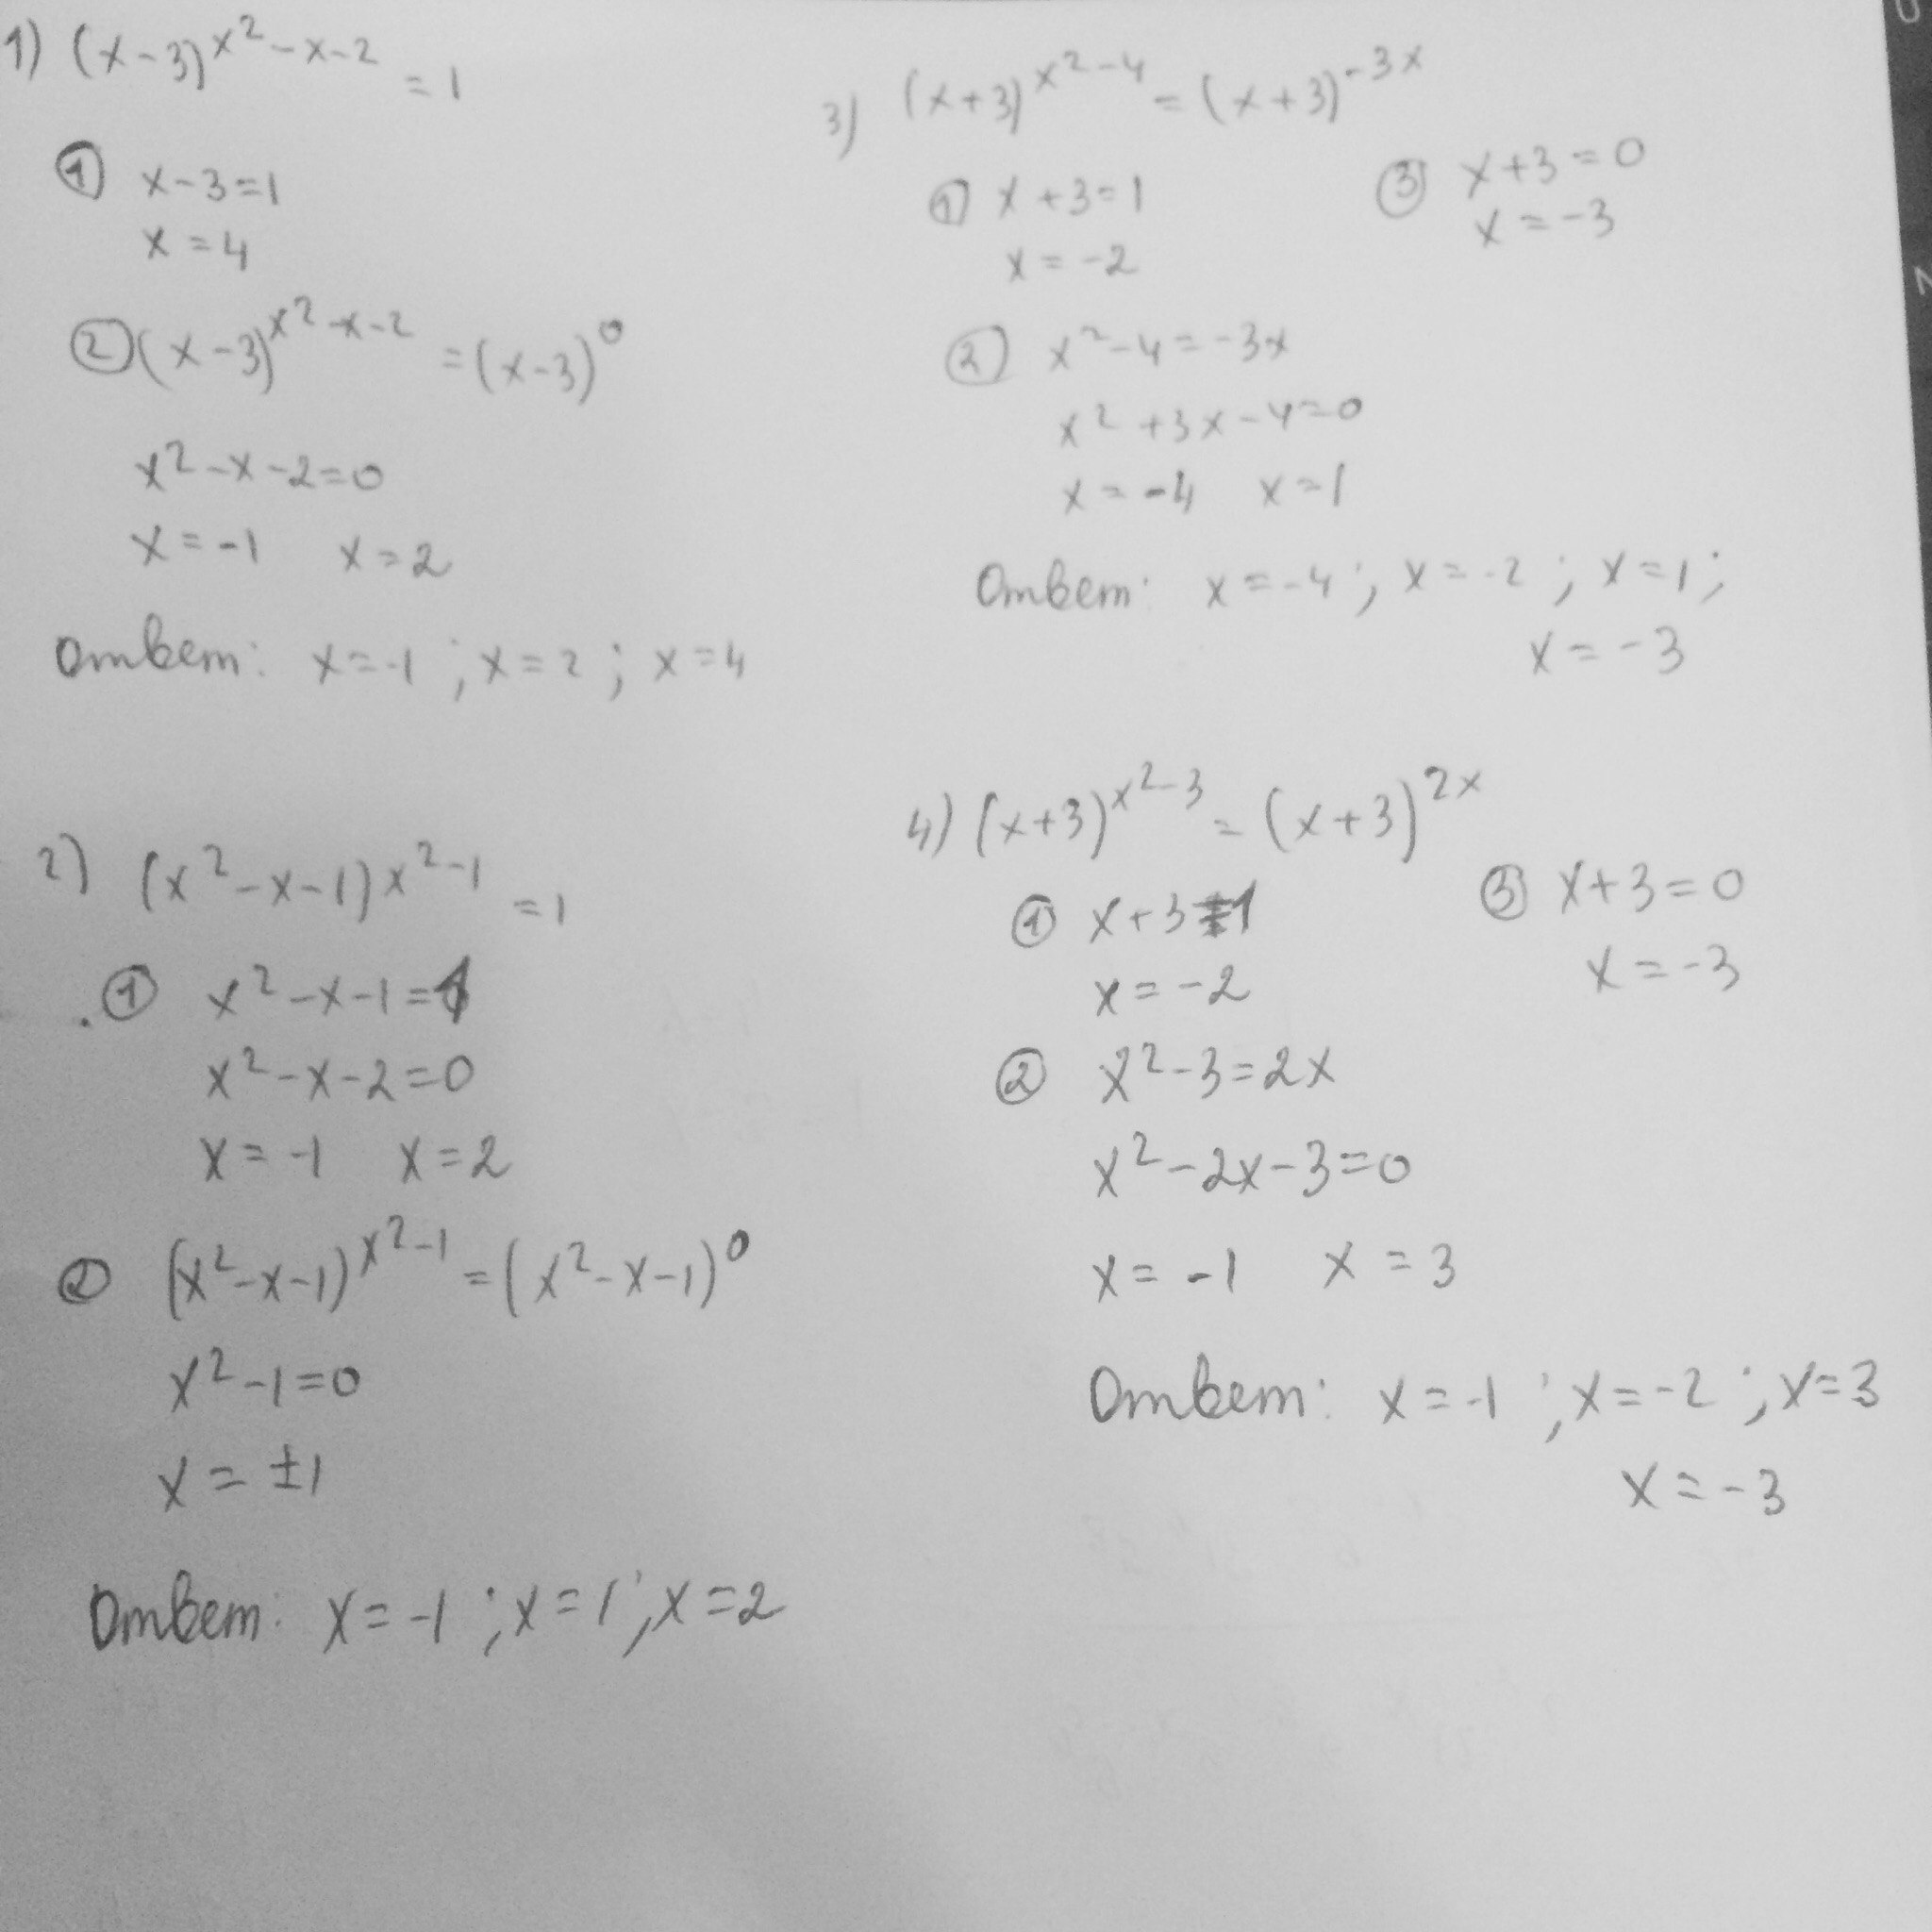 1) (x-3)^{x^2-x-2} = 1
① x-3=1
x=4
② (x-3)^{x^2-x-2} = (x-3)^0
x^2-x-2=0
x=-1 x=2
Ответ: x=-1 ; x=2 ; x=4
2) (x^2-x-1)^{x^2-1} = 1
① x^2-x-1=1
x^2-x-2=0
x=-1 x=2
② (x^2-x-1)^{x^2-1} = (x^2-x-1)^0
x^2-1=0
x=±1
Ответ: x=-1 ; x=1 ; x=2
3) (x+3)^{x^2-4} = (x+3)^{-3x}
① x+3=1
x=-2
③ x+3=0
x=-3
② x^2-4=-3x
x^2+3x-4=0
x=-4 x=1
Ответ: x=-4 ; x=-2 ; x=1 ;
x=-3
4) (x+3)^{x^2-3} = (x+3)^{2x}
① x+3=1
x=-2
③ x+3=0
x=-3
② x^2-3=2x
x^2-2x-3=0
x=-1 x=3
Ответ: x=-1 ; x=-2 ; x=3
x=-3